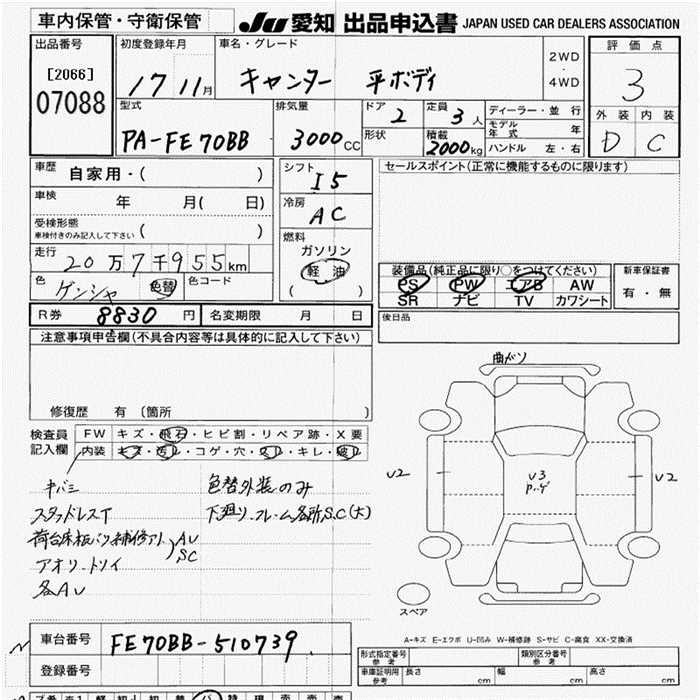 車内保管・守衛保管
JU 愛知 出品申込書 JAPAN USED CAR DEALERS ASSOCIATION
出品番号
[2066]
07088
初度登録年月
17 11月
車名・グレード
キャンター 平ボディ
2WD
・
4WD
評価点
3
外装 内装
D C
型式
PA-FE70BB
排気量
3000cc
ドア 2
形状
定員 3人
積載 2000kg
ディーラー・並行
モデル年式 年
ハンドル 左・右
車歴 自家用・( )
車検 年 月( 日)
受検形態
車検付きのみ記入して下さい ( )
走行 20万7千955km
色 ゲンシャ 色替 色コード
シフト
I5
冷房
AC
燃料
ガソリン
軽油
( )
セールスポイント(正常に機能するものに限ります)
装備品(純正品に限り○をつけてください)
PS PW エアB AW
SR ナビ TV カワシート
新車保証書
有・無
R券 8830円 名変期限 月 日
後日品
注意事項申告欄(不具合内容等は具体的に記入して下さい)
修復歴 有 〔箇所 〕
検査員記入欄
FW キズ・飛石・ヒビ割・リペア跡・X要
内装 キズ・汚レ・コゲ・穴・スレ・キレ・破レ
キバミ
スタッドレスT
荷台床板バリ補修アリ AU
アオリ.トリイ SC
各AU
色替外装のみ
下廻り.フレーム各所S.C(大)
曲ガソ
U2
U3
U2
スペア
A-キズ E-エクボ U-凹み W-補修跡 S-サビ C-腐食 XX-交換済
車台番号 FE70BB-510739
登録番号
形式指定番号
参考
類別区分番号
参考
車庫証明用
参考
長さ cm 幅 cm 高さ cm